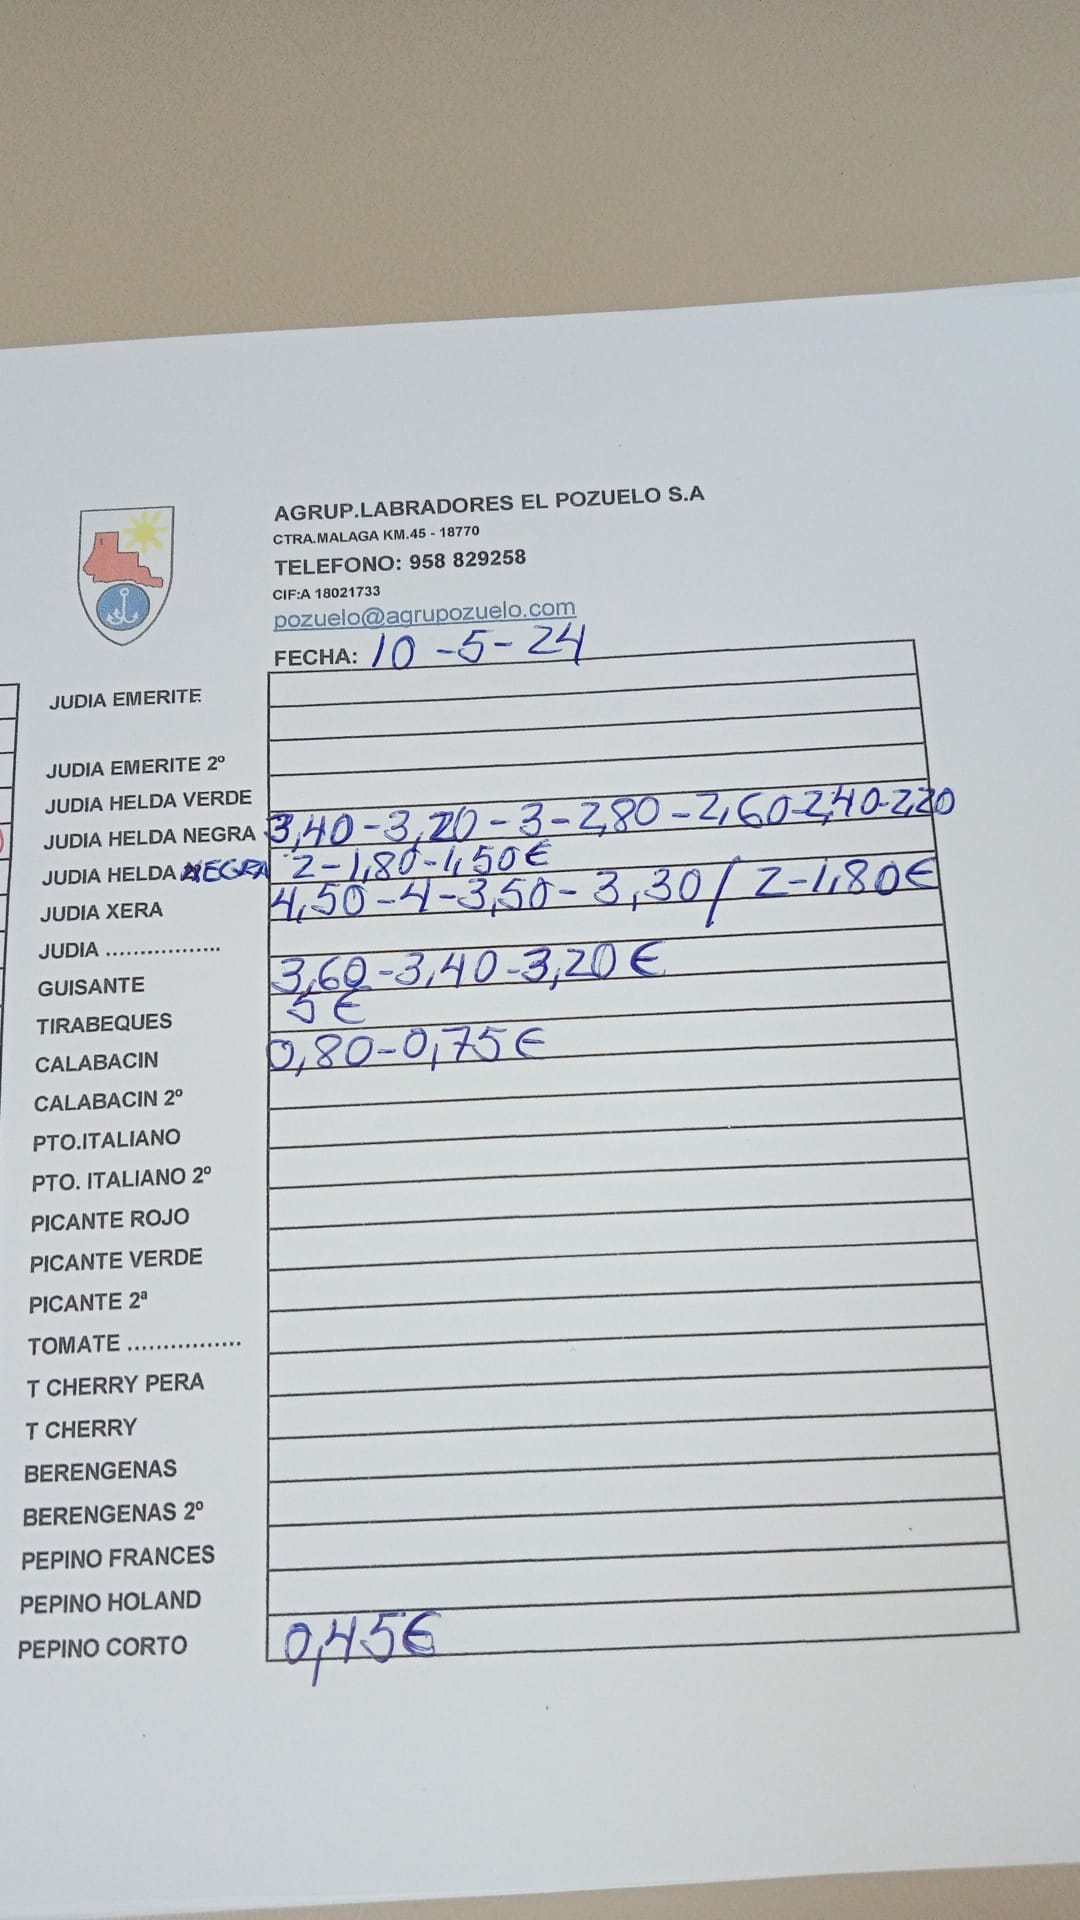 AGRUP.LABRADORES EL POZUELO S.A
CTRA.MALAGA KM.45 - 18770
TELEFONO: 958 829258
CIF:A 18021733
pozuelo@agrupozuelo.com
FECHA: 10-5-24
JUDIA EMERITE
JUDIA EMERITE 2º
JUDIA HELDA VERDE
JUDIA HELDA NEGRA 3,40-3,20-3-2,80-2,60-2,40-2,20
JUDIA HELDA NEGRA 2-1,80-1,50€
JUDIA XERA 4,50-4-3,50-3,30/2-1,80€
JUDIA .................
GUISANTE 3,60-3,40-3,20€
TIRABEQUES 5€
CALABACIN 0,80-0,75€
CALABACIN 2º
PTO.ITALIANO
PTO. ITALIANO 2º
PICANTE ROJO
PICANTE VERDE
PICANTE 2ª
TOMATE ................
T CHERRY PERA
T CHERRY
BERENGENAS
BERENGENAS 2º
PEPINO FRANCES
PEPINO HOLAND
PEPINO CORTO 0,45€